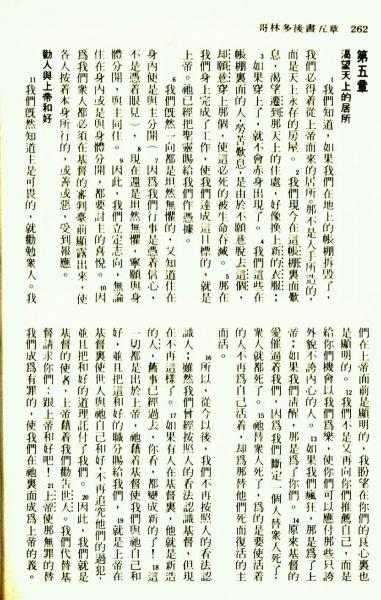 哥林多後書五章 262
第五章
渴望天上的居所
1我們知道，如果我們在地上的帳棚拆毀了，
我們必得着從上帝而來的居所。那不是人手所造的，
而是天上永存的房屋。2我們現今在這帳棚裏面歎
息，渴望遷到那天上的住處，好像換上新的衣服；
3如果穿上了，就不會赤身出現了。4我們這些在
帳棚裏面的人，勞苦歎息，是由於不願意脫去這個，
却願意穿上那個，使這必死的被生命吞滅。5那在
我們身上完成了工作，使我們達成這目標的，就是
上帝。祂已經把聖靈賜給我們作憑據。
6我們旣然一向都是坦然無懼的，又知道住在
身內便是與主分開（7因爲我們行事是憑着信心，
不是憑着眼見），8現在還是坦然無懼，寧願與身
體分開，與主同住。9因此，我們立定志向，無論
住在身內或是與身體分開，都要討主的喜悅。10因
爲我們衆人都必須在基督的審判臺前顯露出來，使
各人按着本身所行的，或善或惡，受到報應。
勸人與上帝和好
11我們旣然知道主是可畏的，就勸勉衆人。我
們在上帝面前是顯明的，我盼望在你們的良心裏也
是顯明的。12我們不是又再向你們推薦自己，而是
給你們機會以我們爲榮，使你們可以應付那些只誇
外貌不誇內心的人。13如果我們瘋狂，那是爲了上
帝；如果我們清醒，那是爲了你們。14原來基督的
愛催逼着我們，因爲我們斷定一個人替衆人死了，
衆人就都死了。15祂替衆人死了，爲的是要使活着
的人不再爲自己活着，却爲那替他們死而復活了主
而活。
16所以，從今以後，我們不再按照人的看法認
識人；雖然我們曾經按照人的看法認識基督，但現
在不再這樣了。17如果有人在基督裏，他就是新造
的人，舊事已經過去，你看，都變成新的了！18這
一切都是出於上帝，祂藉着基督使我們與祂自己和
好，並且把這和好的職分賜給我們，19就是上帝在
基督裏使世人與祂自己和好，不再追究他們的過犯，
並且把和好的道理託付了我們。20因此，我們就是
基督的使者，上帝藉着我們勸告世人。我們代替基
督請求你們：跟上帝和好吧！21上帝使那無罪的替
我們成爲有罪的，使我們在祂裏面成爲上帝的義。